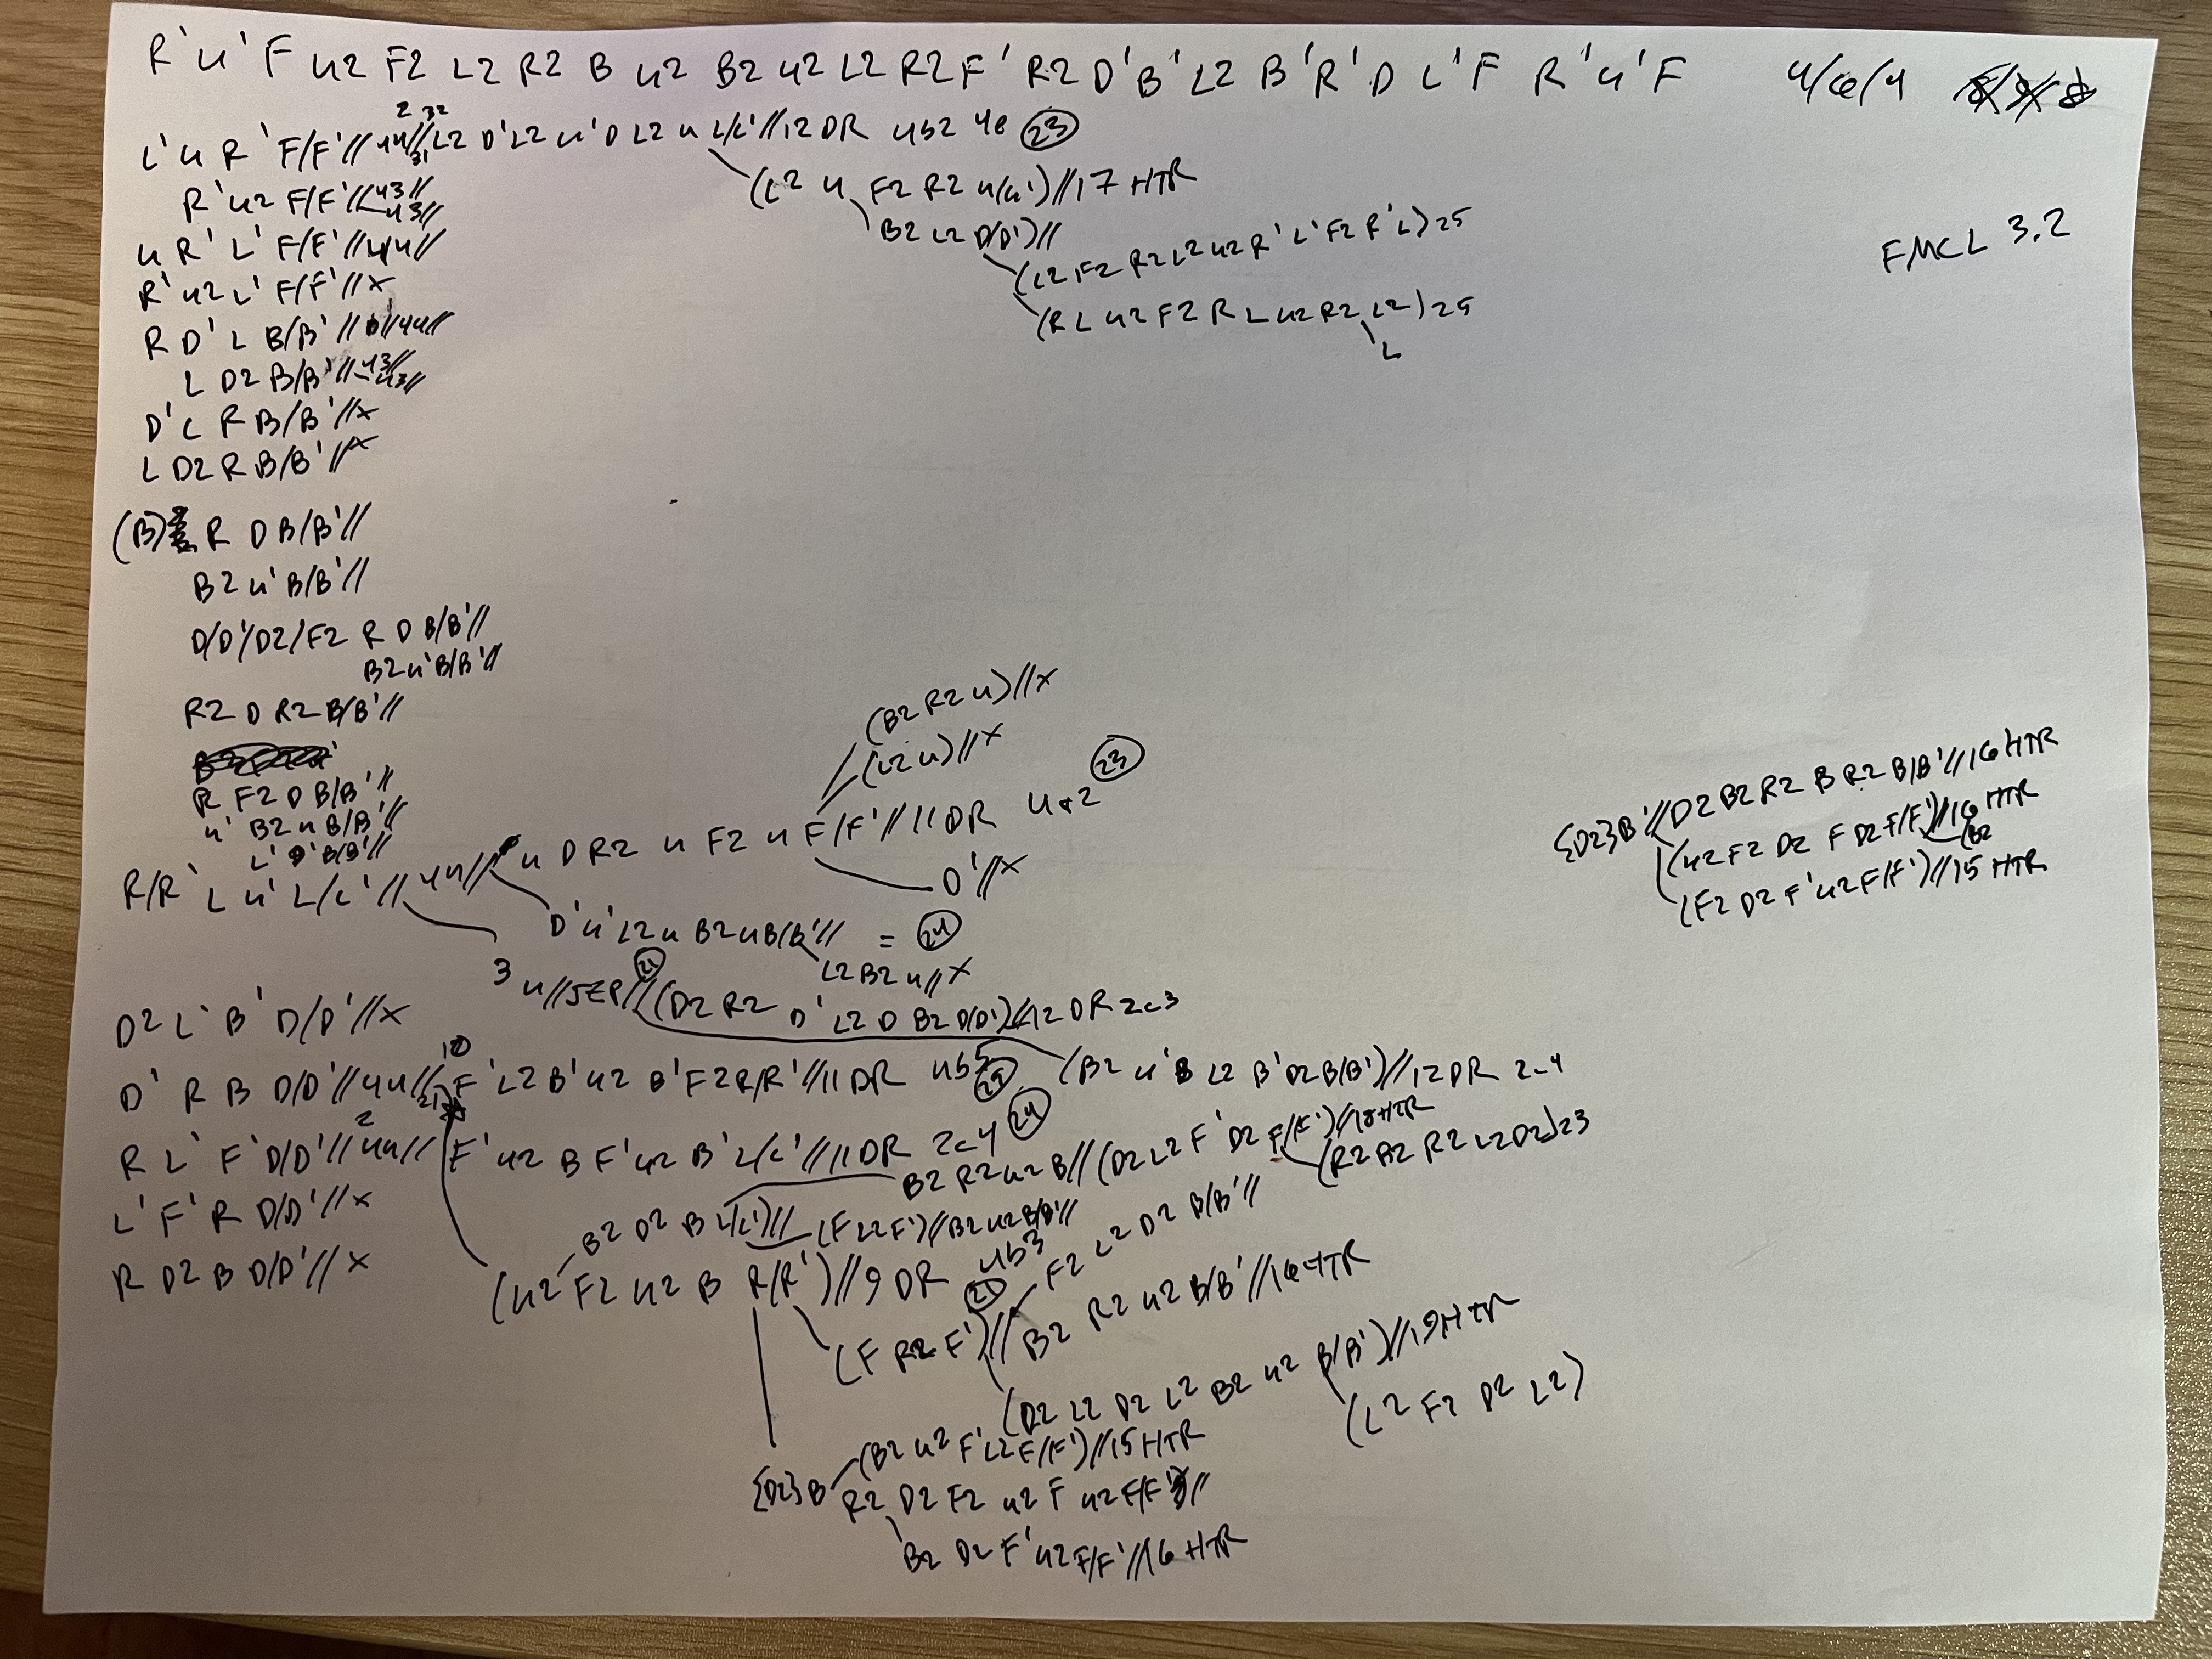 R' u' F u2 F2 L2 R2 B u2 B2 u2 L2 R2 F' R2 D' B' L2 B' R' D L' F R' u' F 4/6/4
L' u R' F/F' // 4u // L2 D' L2 u' D L2 u L/L' // 12 DR 4b2 4e 23
(L2 u F2 R2 u(u') // 17 HTR
R' u2 F/F' // 43 //
43 //
B2 L2 D/D') //
u R' L' F/F' // 44 //
(L2 F2 R2 L2 u2 R' L' F2 R' L) 25
FMCL 3.2
R' u2 L' F/F' // x
(R L u2 F2 R L u2 R2 L2) 25
L
R D' L B/B' // 44 //
L D2 B/B' // 43 //
43 //
D' L R B/B' // x
L D2 R B/B' // x
(B) R D B/B' //
B2 u' B/B' //
D/D'/D2/F2 R D B/B' //
B2 u' B/B' //
R2 D R2 B/B' //
(B2 R2 u) // x
(L2 u) // x
R F2 D B/B' //
u' B2 u B/B' //
L' D' B/B' //
R/R' L u' L/L' // 44 // u D R2 u F2 u F/F' // 11 DR 4a2 23
D' // x
D' u' L2 u B2 u B/B' // = 24
L2 B2 u // x
3 u // 5EP // (D2 R2 D' L2 D B2 D(D') // 12 DR 2c3
21
{D2} B' // D2 B2 R2 B R2 B/B' // 16 HTR
(u2 F2 D2 F D2 F/F') // 16 HTR
(B2
(F2 D2 F' u2 F/F') // 15 HTR
D2 L' B' D/D' // x
D' R B D/D' // 44 // F' L2 B' u2 B' F2 R/R' // 11 DR 4b5
(B2 u' B L2 B' D2 B/B') // 12 DR 2c4
R L' F' D/D' // 44 // F' u2 B F' u2 B' L/L' // 11 DR 2c4 24
B2 R2 u2 B // (D2 L2 F' D2 F/F') // 18 HTR
(R2 B2 R2 L2 D2) 23
L' F' R D/D' // x
B2 D2 B L/L') // (F L2 F') // B2 u2 B/B' //
R D2 B D/D' // x
(u2 F2 u2 B R/R') // 9 DR 4b3 21
F2 L2 D2 B/B' //
(F R2 F') // B2 R2 u2 B/B' // 16 HTR
(D2 L2 D2 L2 B2 u2 B/B') // 19 HTR
(L2 F2 D2 L2)
{D2} B (B2 u2 F' L2 F/F') // 15 HTR
R2 D2 F2 u2 F u2 F/F' //
B2 D2 F' u2 F/F' // 16 HTR